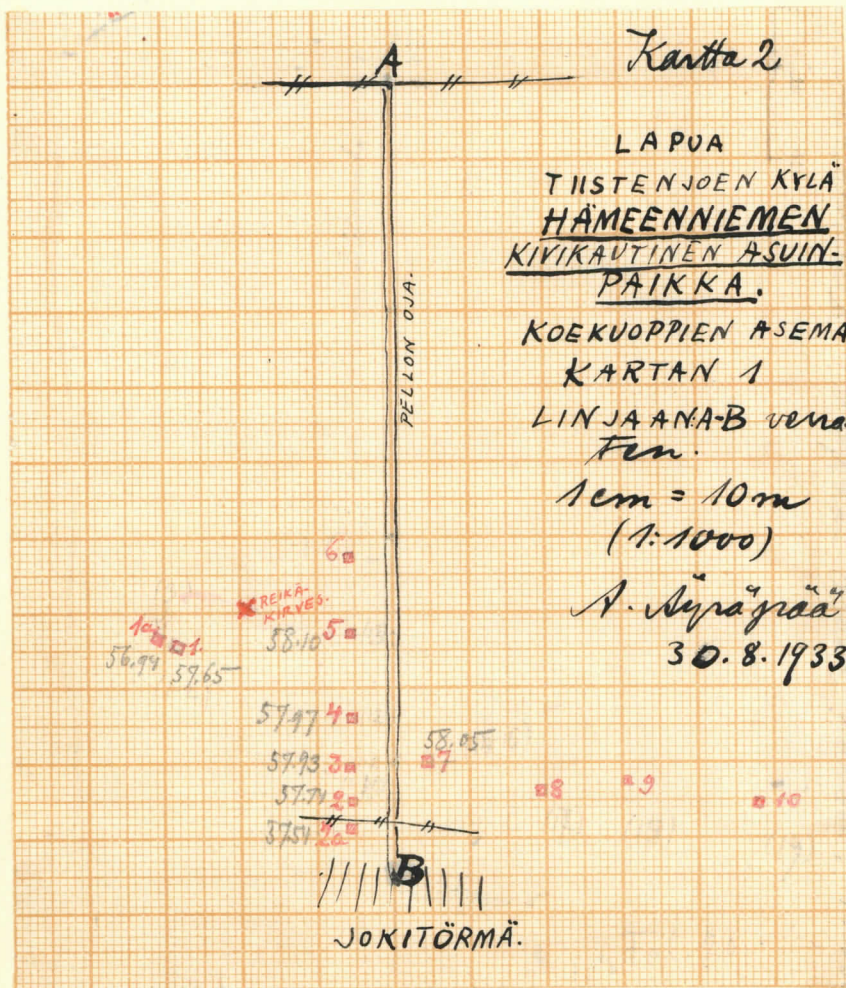 Kartta 2
A
LAPUA
TIISTENJOEN KYLÄ
HÄMEENNIEMEN
KIVIKAUTINEN ASUIN-
PAIKKA.
KOEKUOPPIEN ASEMA
KARTAN 1
LINJAAN A-B
1 cm = 10 m
(1:1000)
A. Äyräpää
30.8.1933
PELLON OJA.
6
REIKÄ-
KIRVES.
1a 1.
56.94 57.65
58.10 5
57.97 4
58.05
57.93 3 7
57.74 2 8 9 10
2a
B
JOKITÖRMÄ.